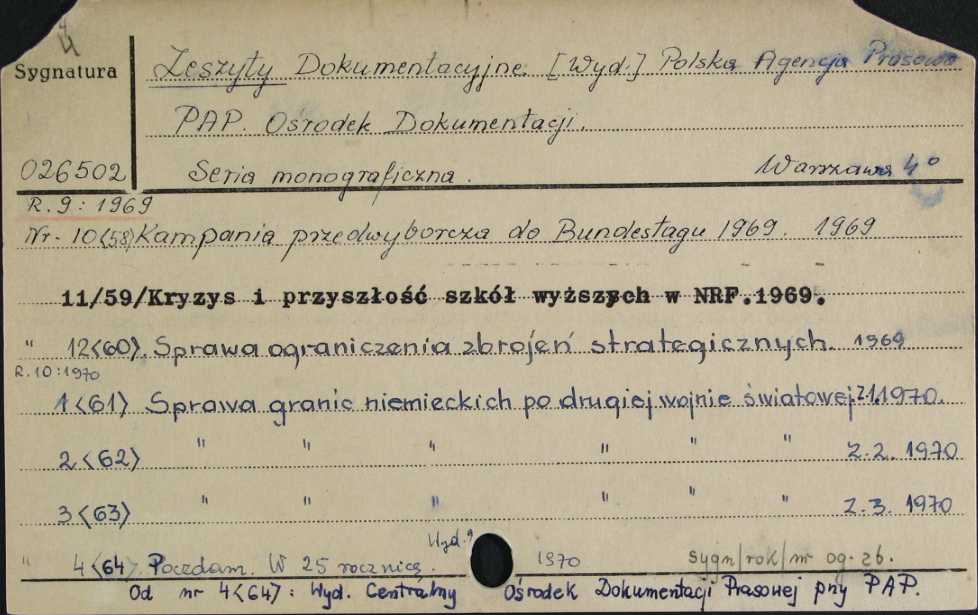 4
Sygnatura
Zeszyty Dokumentacyjne. [Wyd.] Polska Agencja Prasowa
PAP. Ośrodek Dokumentacji.
026502 Seria monograficzna. Warszawa 4°
R. 9: 1969
Nr. 10<58> Kampania przedwyborcza do Bundestagu 1969. 1969
11/59/Kryzys i przyszłość szkół wyższych w NRF.1969.
" 12<60>. Sprawa ograniczenia zbrojeń strategicznych. 1969
R. 10: 1970
1<61> Sprawa granic niemieckich po drugiej wojnie światowej. Z.1. 1970.
2<62> " " " " " " Z. 2. 1970
3<63> " " " " " " Z. 3. 1970
" 4<64>. Poczdam. W 25 rocznicę. Wyd. 1970 sygn/rok/nr og. zb.
Od nr 4<64>: Wyd. Centralny Ośrodek Dokumentacji Prasowej przy PAP.